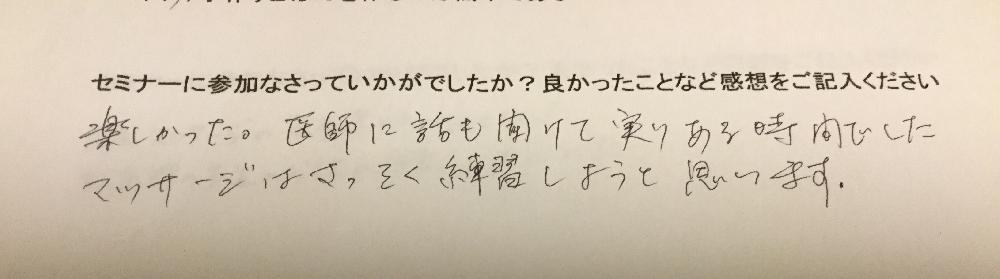 セミナーに参加なさっていかがでしたか？良かったことなど感想をご記入ください
楽しかった。医師に話も聞けて実りある時間でした
マッサージはさっそく練習しようと思います.